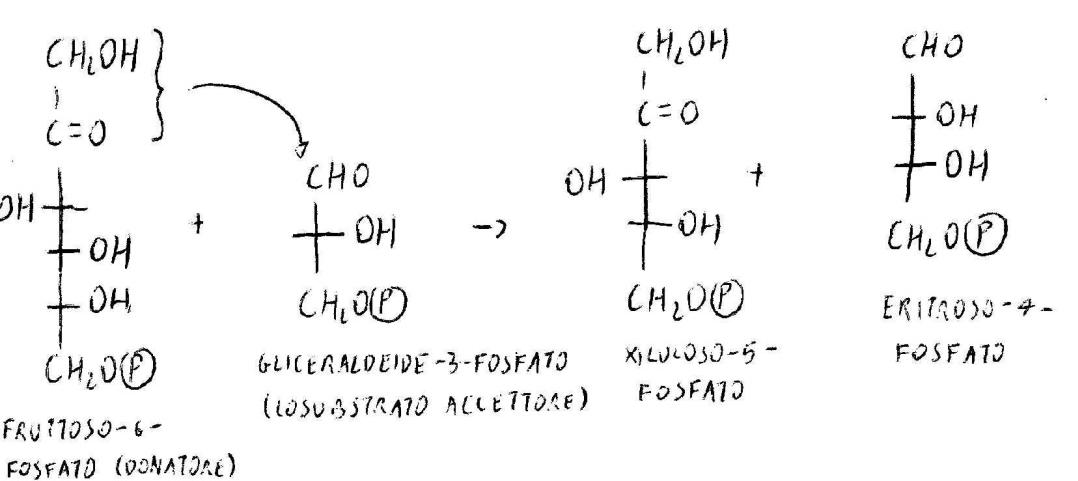 CH₂OH
C=O
OH
OH
OH
CH₂OⓅ
FRUTTOSO-6-
FOSFATO (DONATORE)
+
CHO
OH
CH₂OⓅ
GLICERALDEIDE-3-FOSFATO
(COSUBSTRATO ACCETTORE)
→
CH₂OH
C=O
OH
OH
CH₂OⓅ
XILULOSO-5-
FOSFATO
+
CHO
OH
OH
CH₂OⓅ
ERITROSO-4-
FOSFATO